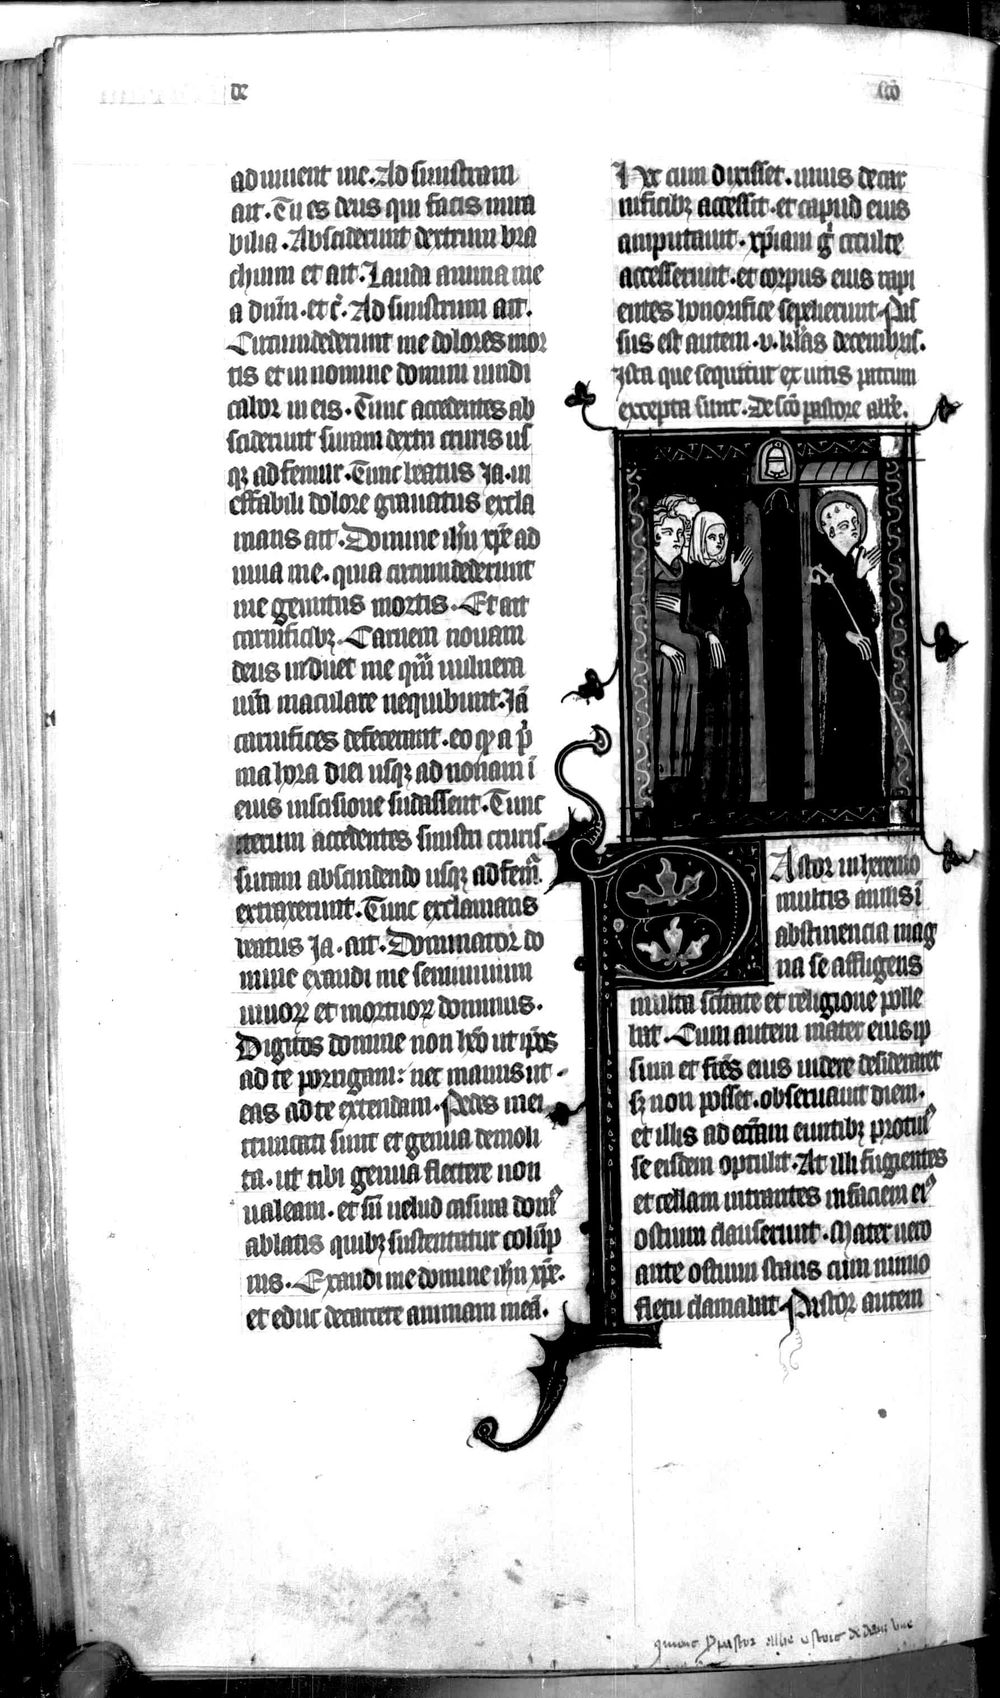 de
sco
adiuuent me. Ad sinistram
ait. Tu es deus qui facis mira
bilia. Absciderunt dextrum bra
chium et ait. Lauda anima me
a dum̄. et c̄. Ad sinistrum ait.
Circumdederunt me dolores mor
tis et in nomine domini uindi
cabor in eis. Tunc accedentes ab
sciderunt suram dextri cruris us
qꝫ ad femur. Tunc beatus Ja. in
effabili dolore grauatus excla
mans ait. Domine ihū xp̄e ad
iuua me. quia circumdederunt
me gemitus mortis. Et ait
carnificibꝫ. Carnem nouam
deus induet me quā uulnera
ur̄a maculare nequibunt. Jā
carnifices defecerant. eo qꝫ a p̄
ma hora diei usqꝫ ad nonam ī
eius inscisione sudassent. Tunc
iterum accedentes sinistri cruris
suram abscindendo usqꝫ ad fem̄.
extraxerunt. Tunc exclamans
beatus Ja. ait. Dominator do
mine exaudi me semiuiuum
uiuoꝝ et mortuoꝝ dominus.
Digitos domine non hēō ut ip̄os
ad te porrigam: nec manus ut
eas ad te extendam. Pedes mei
truncati sunt et genua demoli
ta. ut tibi genua flectere non
ualeam. et sū uelud casura domꝰ
ablatis quibꝫ sustentatur colūp
nis. Exaudi me domine ihū xp̄e.
et educ de carcere animam meā.
Hec cum dixisset. unus de car
nificibꝫ accessit. et capud eius
amputauit. xp̄iani g̊ occulte
accesserunt. et corpus eius rapi
entes honorifice sepelierunt. Pas
sus est autem .v. kl̄as decembris.
Ista que sequitur ex uitis patrum
excepta sunt. De sc̄o pastore abb̄e.
Pastor in heremo
multis annis ī
abstinencia mag
na se affligens
multa sc̄itate et religione polle
bat. Cum autem mater eius ip
sum et fr̄es eius uidere desideraret
sꝫ non posset. obseruauit diem.
et illis ad ecc̄iam euntibꝫ protinꝰ
se eisdem optulit. At illi fugientes
et cellam intrantes in faciem eiꝰ
ostium clauserunt. Mater uero
ante ostium stans cum nimio
fletu clamabat. Pastor autem